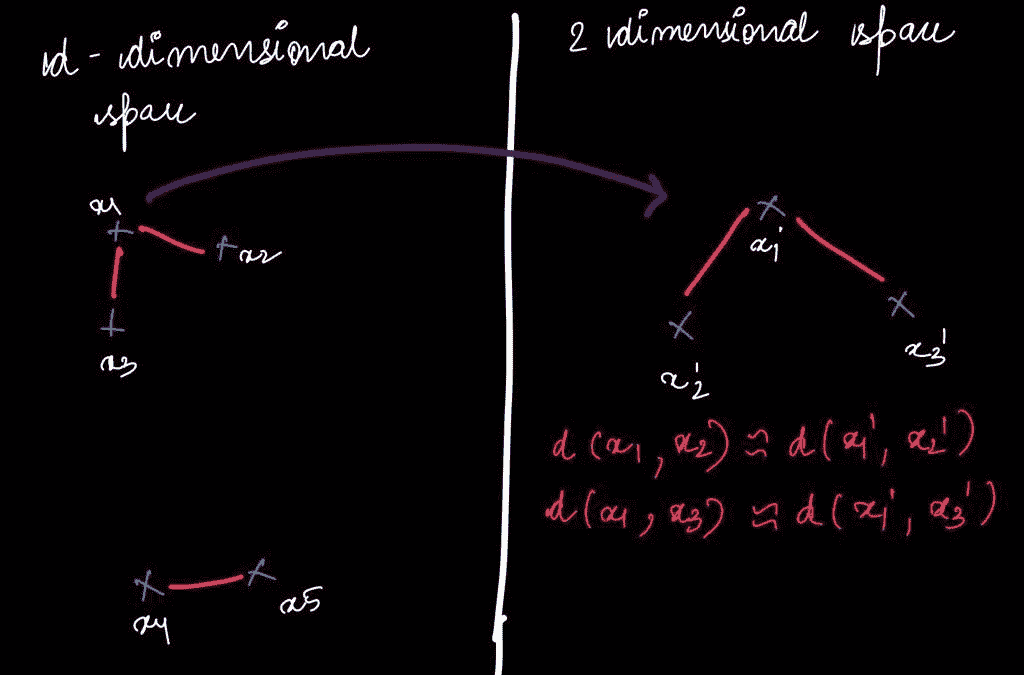 d - dimensional
space
x1
x2
x3
x4
x5
2 dimensional space
x1'
x2'
x3'
d(x1, x2) ≈ d(x1', x2')
d(x1, x3) ≈ d(x1', x3')